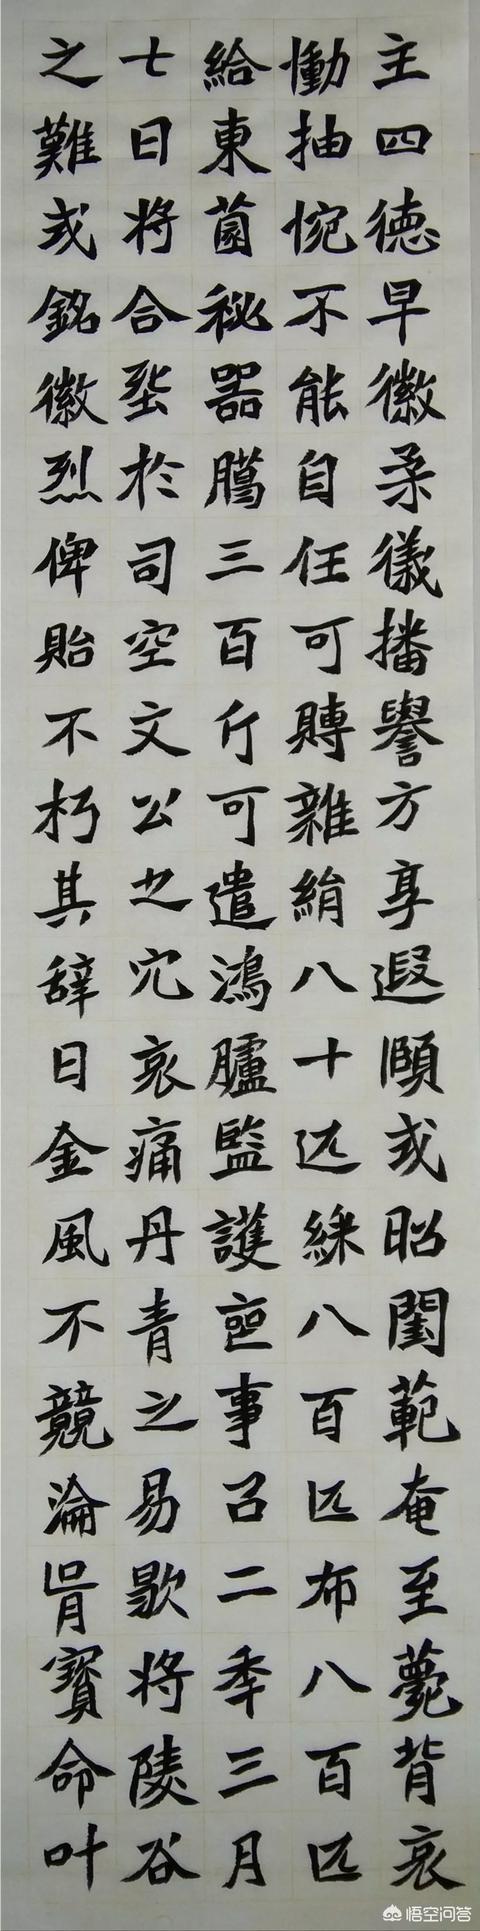 主四徳早徽柔儀播譽方享遐頤式昭閨範奄至薨背哀
慟抽惋不能自任可賻雜絹八十匹綵八百匹布八百匹
給東園秘器臈三百斤可遣鴻臚監護喪事以二季三月
七日将合塟於司空文公之穴哀痛丹青之易歇将陵谷
之難式銘徽烈俾貽不朽其辞曰金風不競淪胥寶命叶
悟空问答